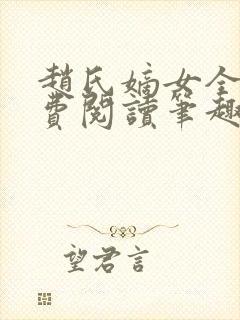 趙氏嫡女全
費閱讀筆趣
望君言